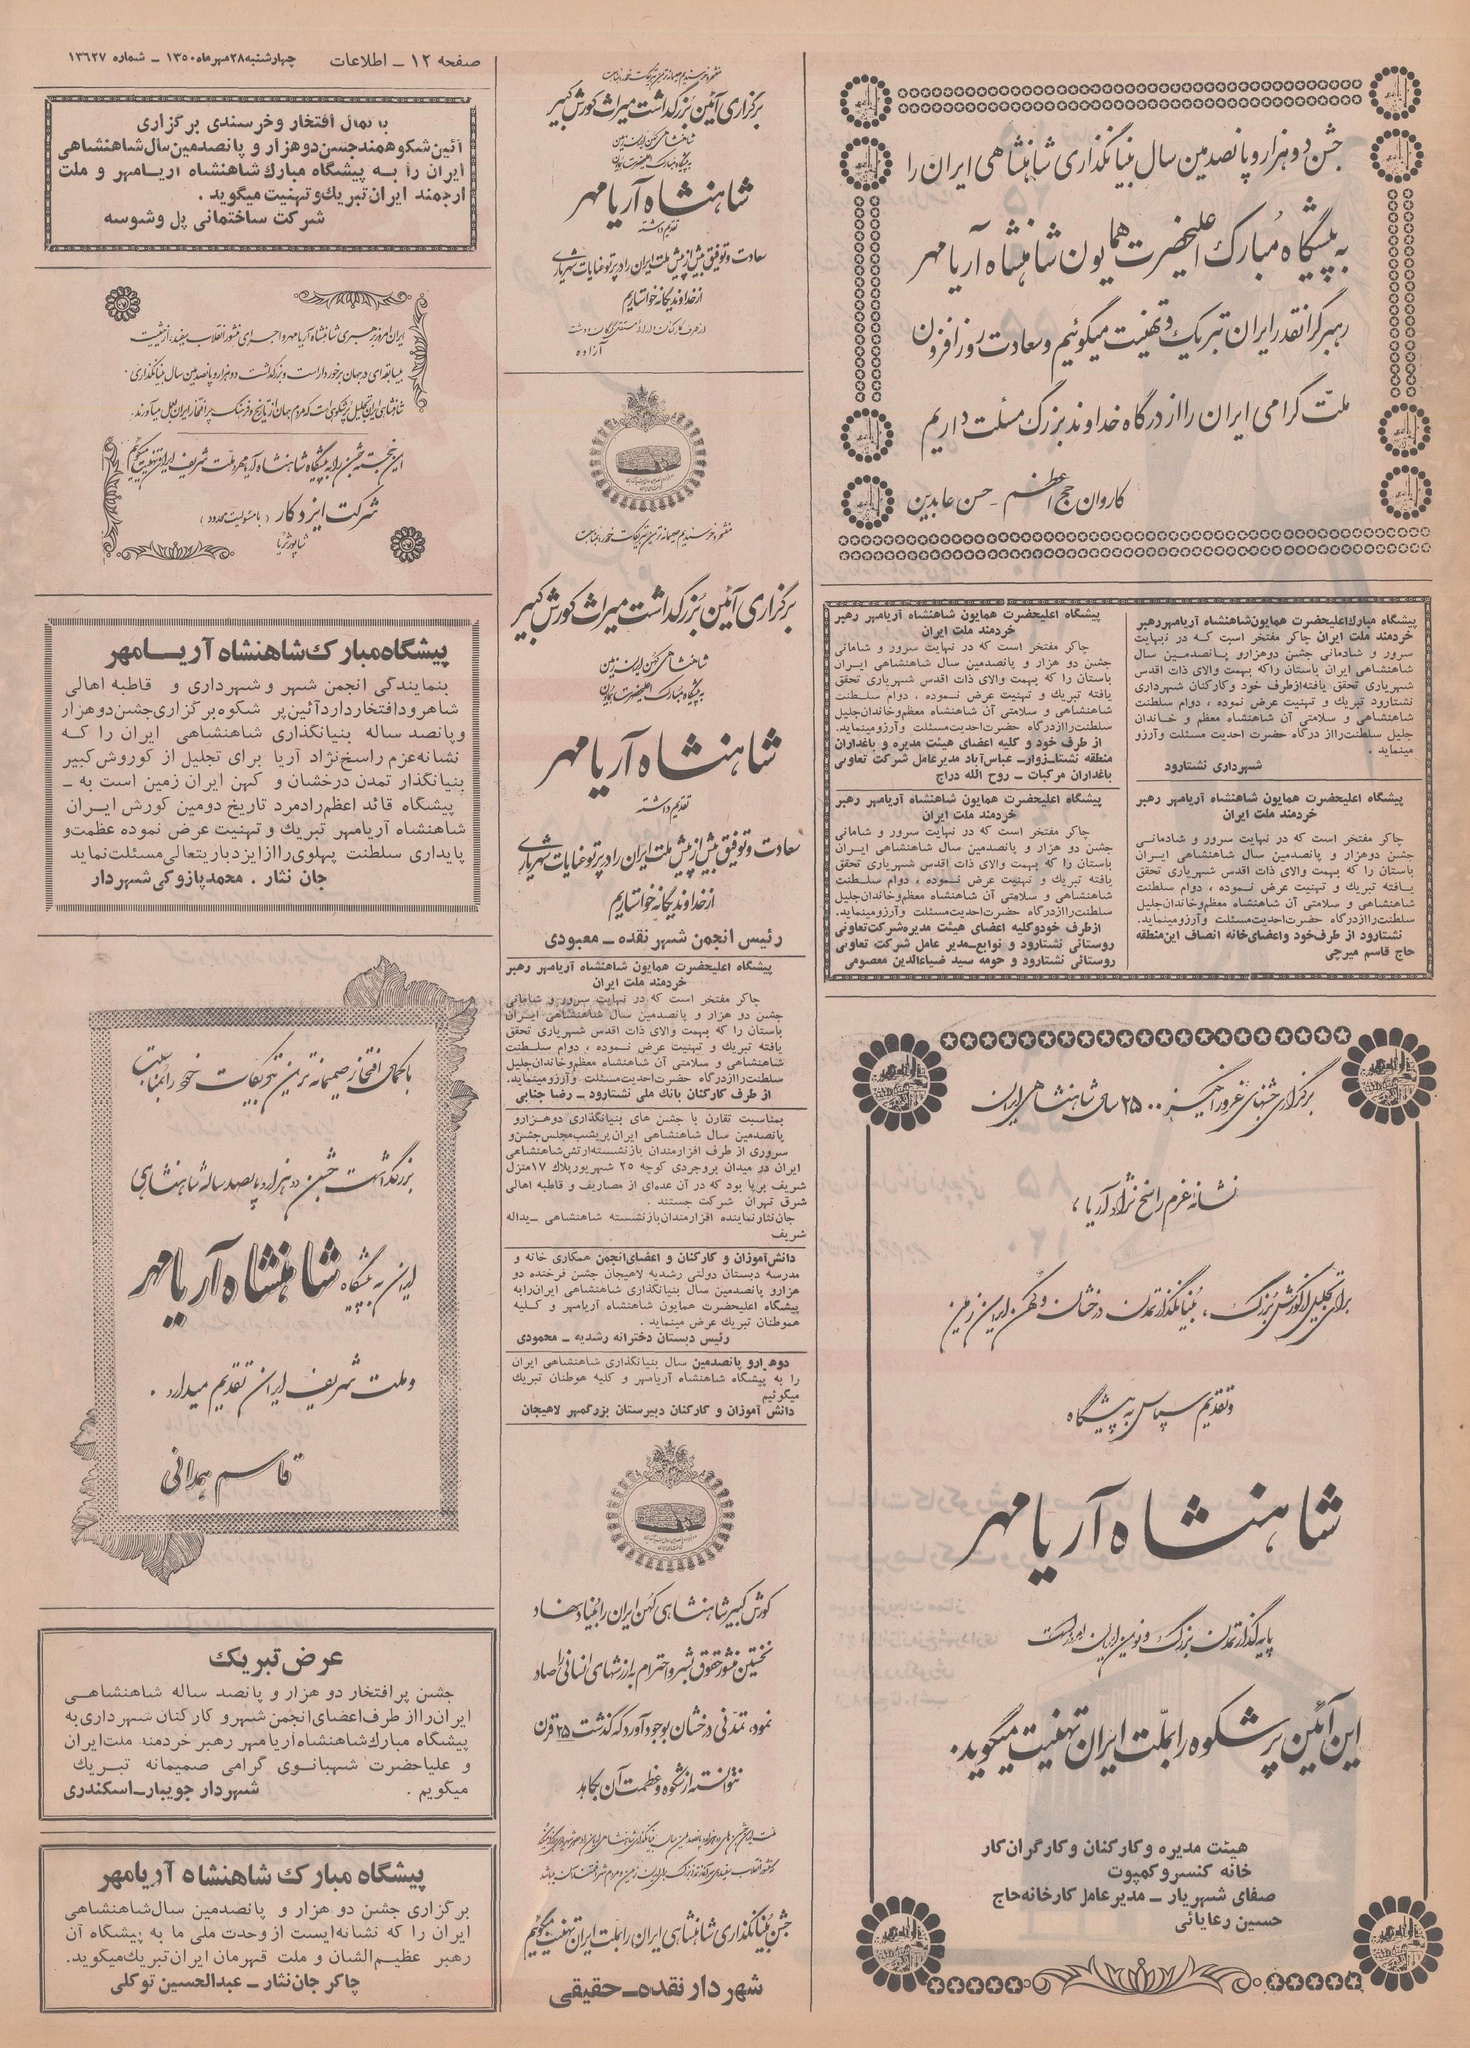 صفحه ۱۲ ــ اطلاعات
چهارشنبه ۲۸ مهر ماه ۱۳۵۰ ــ شماره ۱۳۶۲۷
جشن دو هزار و پانصدمین سال بنیانگذاری شاهنشاهی ایران را
به پیشگاه مبارک اعلیحضرت همایون شاهنشاه آریامهر
رهبر گرانقدر ایران تبریک و تهنیت میگوئیم و سعادت روز افزون
ملت گرامی ایران را از درگاه خداوند بزرگ مسئلت داریم
کاروان حج اعظم - حسن عابدین
پیشگاه مبارك اعلیحضرت همایون شاهنشاه آریامهر رهبر
خردمند ملت ایران چاکر مفتخر است که در نهایت
سرور و شادمانی جشن دوهزارو پانصدمین سال
شاهنشاهی ایران باستان را که بهمت والای ذات اقدس
شهریاری تحقق یافته از طرف خود و کارکنان شهرداری
نشتارود تبریك و تهنیت عرض نموده ، دوام سلطنت
شاهنشاهی و سلامتی آن شاهنشاه معظم و خاندان
جلیل سلطنت را از درگاه حضرت احدیت مسئلت و آرزو
مینماید .
شهرداری نشتارود
پیشگاه اعلیحضرت همایون شاهنشاه آریامهر رهبر
خردمند ملت ایران
چاکر مفتخر است که در نهایت سرور و شادمانی
جشن دوهزار و پانصدمین سال شاهنشاهی ایران
باستان را که بهمت والای ذات اقدس شهریاری تحقق
یافته تبریك و تهنیت عرض نموده ، دوام سلطنت
شاهنشاهی و سلامتی آن شاهنشاه معظم و خاندان جلیل
سلطنت را از درگاه حضرت احدیت مسئلت و آرزو مینماید.
نشتارود از طرف خود و اعضای خانه انصاف این منطقه
حاج قاسم میرچی
پیشگاه اعلیحضرت همایون شاهنشاه آریامهر رهبر
خردمند ملت ایران
چاکر مفتخر است که در نهایت سرور و شامانی
جشن دو هزار و پانصدمین سال شاهنشاهی ایران
باستان را که بهمت والای ذات اقدس شهریاری تحقق
یافته تبریك و تهنیت عرض نموده ، دوام سلطنت
شاهنشاهی و سلامتی آن شاهنشاه معظم و خاندان جلیل
سلطنت را از درگاه حضرت احدیت مسئلت و آرزو مینماید.
از طرف خود و کلیه اعضای هیئت مدیره و باغداران
منطقه عباس آباد مدیر عامل شرکت تعاونی
باغداران مرکبات - روح الله دراج
پیشگاه اعلیحضرت همایون شاهنشاه آریامهر رهبر
خردمند ملت ایران
چاکر مفتخر است که در نهایت سرور و شامانی
جشن دو هزار و پانصدمین سال شاهنشاهی ایران
باستان را که بهمت والای ذات اقدس شهریاری تحقق
یافته تبریك و تهنیت عرض نموده ، دوام سلطنت
شاهنشاهی و سلامتی آن شاهنشاه معظم و خاندان جلیل
سلطنت را از درگاه حضرت احدیت مسئلت و آرزو مینماید.
از طرف خود و کلیه اعضای هیئت مدیره شرکت تعاونی
روستائی نشتارود و توابع ــ مدیر عامل شرکت تعاونی
روستائی نشتارود و حومه سید ضیاءالدین معصومی
برگزاری جشنهای غرور انگیز ۲۵۰۰ سال شاهنشاهی ایران
نشانۀ عزم راسخ نژاد آریا ،
برای تجلیل از کورش بزرگ ، بنیانگذار تمدن درخشان و کهن ایران زمین
و تقدیم سپاس به پیشگاه
شاهنشاه آریامهر
پایه گذار تمدن بزرگ و نوین ایران امروز است
این آئین پر شکوه را بملت ایران تهنیت میگوید.
هیئت مدیره و کارکنان و کارگران کار
خانه کنسرو کمپوت
صفای شهریار ــ مدیرعامل کارخانه حاج
حسین رعایائی
مفتخر و خرسندیم صمیمانه ترین تبریکات خود را بمناسبت
برگزاری آئین بزرگداشت میراث کورش کبیر
شاهنشاهی کهن ایران زمین
به پیشگاه مبارک اعلیحضرت همایون
شاهنشاه آریامهر
تقدیم داشته
سعادت و توفیق بیش از پیش ملت ایران را در پرتو عنایات شهریاری
از خداوند یگانه خواستاریم
آزاده
مفتخر و خرسندیم صمیمانه ترین تبریکات خود را بمناسبت
برگزاری آئین بزرگداشت میراث کورش کبیر
شاهنشاهی کهن ایران زمین
به پیشگاه مبارک اعلیحضرت همایون
شاهنشاه آریامهر
تقدیم داشته
سعادت و توفیق بیش از پیش ملت ایران را در پرتو عنایات شهریاری
از خداوند یگانه خواستاریم
رئیس انجمن شهر نقده ــ معبودی
پیشگاه اعلیحضرت همایون شاهنشاه آریامهر رهبر
خردمند ملت ایران
چاکر مفتخر است که در نهایت سرور و شامانی
جشن دو هزار و پانصدمین سال شاهنشاهی ایران
باستان را که بهمت والای ذات اقدس شهریاری تحقق
یافته تبریك و تهنیت عرض نموده ، دوام سلطنت
شاهنشاهی و سلامتی آن شاهنشاه معظم و خاندان جلیل
سلطنت را از درگاه حضرت احدیت مسئلت و آرزو مینماید.
از طرف کارکنان بانك ملی نشتارود ــ رضا جنابی
بمناسبت تقارن با جشن های بنیانگذاری دوهزارو
پانصدمین سال شاهنشاهی ایران پریشب مجلس جشن و
سروری از طرف افزارمندان بازنشسته ارتش شاهنشاهی
ایران در میدان بروجردی کوچه ۲۵ شهریور پلاك ۱۷ منزل
شریف برپا بود که در آن عده‌ای از مصاریف و قاطبه اهالی
شرق تهران شرکت جستند .
جان نثار نماینده افزارمندان بازنشسته شاهنشاهی ــ یداله
شریف
دانش آموزان و کارکنان و اعضای انجمن همکاری خانه و
مدرسه دبستان دولتی رشدیه لاهیجان جشن فرخنده دو
هزارو پانصدمین سال بنیانگذاری شاهنشاهی ایران را به
پیشگاه اعلیحضرت همایون شاهنشاه آریامهر و کلیه
هموطنان تبریك عرض مینماید .
رئیس دبستان دخترانه رشدیه ــ محمودی
دوهزارو پانصدمین سال بنیانگذاری شاهنشاهی ایران
را به پیشگاه شاهنشاه آریامهر و کلیه هوطنان تبریك
میگوئیم
دانش آموزان و کارکنان دبیرستان بزرگمهر لاهیجان
کورش کبیر شاهنشاهی کهن ایران را بنیاد نهاد
نخستین منشور حقوق بشر و احترام به ارزشهای انسانی را صادر
نمود، تمدنی درخشان بوجود آورد که گذشت ۲۵ قرن
نتوانسته از شکوه و عظمت آن بکاهد
جشن بنیانگذاری شاهنشاهی ایران را بملت ایران تهنیت میگوئیم
شهردار نقده ــ حقیقی
با کمال افتخار و خرسندی برگزاری
آئین شکوهمند جشن دو هزار و پانصدمین سال شاهنشاهی
ایران را به پیشگاه مبارك شاهنشاه آریامهر و ملت
ارجمند ایران تبریك و تهنیت میگوید .
شرکت ساختمانی پل و شوسه
ایران امروز برهبری شاهنشاه آریامهر و اجرای منشور انقلاب سفید، از حیثیت
بیسابقه‌ای در جهان برخوردار است و بزرگداشت دو هزار و پانصدمین سال بنیانگذاری
شاهنشاهی ایران تجلیل پرشکوهی است که مردم جهان از تاریخ و فرهنگ پر افتخار ایران بعمل میآورند.
این خجسته جشن را به پیشگاه شاهنشاه آریامهر و ملت شریف ایران تهنیت میگوئیم
شرکت ایزدکار (با مسئولیت محدود)
شاپور ثریا
پیشگاه مبارك شاهنشاه آریامهر
بنمایندگی انجمن شهر و شهرداری و قاطبه اهالی
شاهرود افتخار دارد آئین پر شکوه برگزاری جشن دو هزار
و پانصد ساله بنیانگذاری شاهنشاهی ایران را که
نشانه عزم راسخ نژاد آریا برای تجلیل از کوروش کبیر
بنیانگذار تمدن درخشان و کهن ایران زمین است به ــ
پیشگاه قائد اعظم رادمرد تاریخ دومین کورش ایران
شاهنشاه آریامهر تبریك و تهنیت عرض نموده عظمت و
پایداری سلطنت پهلوی را از ایزد باریتعالی مسئلت نماید
جان نثار . محمد پازوکی شهردار
با کمال افتخار صمیمانه ترین تبریکات خود را بمناسبت
بزرگداشت جشن دو هزار و پانصد ساله شاهنشاهی
ایران به پیشگاه شاهنشاه آریامهر
و ملت شریف ایران تقدیم میدارد .
قاسم همدانی
عرض تبریك
جشن پر افتخار دو هزار و پانصد ساله شاهنشاهی
ایران را از طرف اعضای انجمن شهر و کارکنان شهرداری به
پیشگاه مبارك شاهنشاه آریامهر رهبر خردمند ملت ایران
و علیاحضرت شهبانوی گرامی صمیمانه تبریك
میگویم . شهردار جویبار ــ اسکندری
پیشگاه مبارك شاهنشاه آریامهر
برگزاری جشن دو هزار و پانصدمین سال شاهنشاهی
ایران را که نشانه ایست از وحدت ملی ما به پیشگاه آن
رهبر عظیم الشان و ملت قهرمان ایران تبریك میگوید.
چاکر جان نثار ــ عبدالحسین توکلی